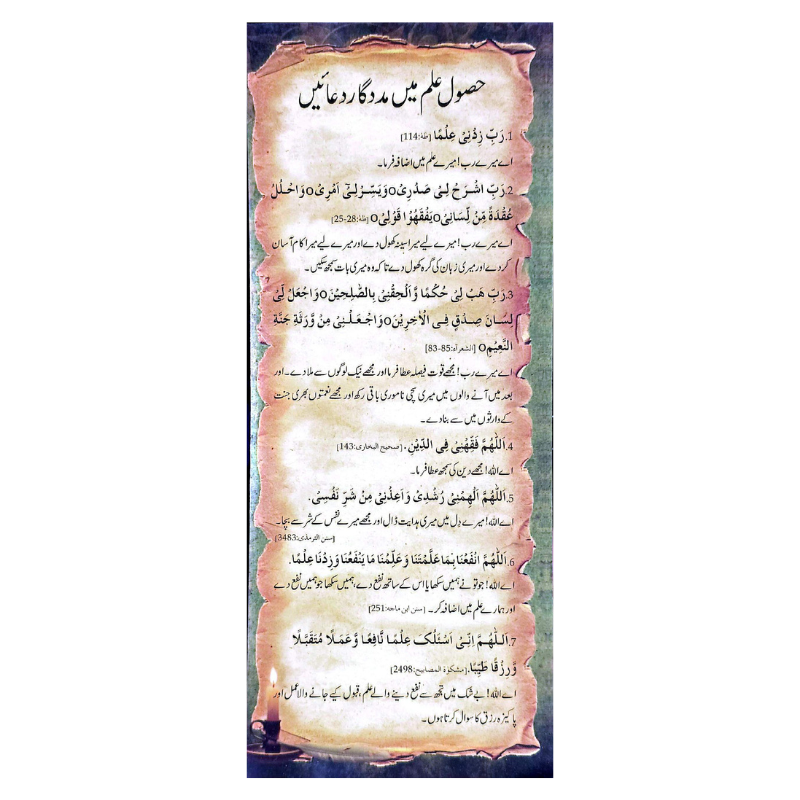 حصول علم میں مددگار دعائیں
1. رَبِّ زِدْنِیْ عِلْمًا [طٰہٰ:114]
اے میرے رب! میرے علم میں اضافہ فرما۔
2. رَبِّ اشْرَحْ لِیْ صَدْرِیْo وَیَسِّرْلِیْٓ اَمْرِیْo وَاحْلُلْ
عُقْدَةً مِّنْ لِّسَانِیْo یَفْقَهُوْا قَوْلِیْo [طٰہٰ:28-25]
اے میرے رب! میرے لیے میرا سینہ کھول دے اور میرے لیے میرا کام آسان
کردے اور میری زبان کی گرہ کھول دے تاکہ وہ میری بات سمجھ سکیں۔
3. رَبِّ هَبْ لِیْ حُکْمًا وَّاَلْحِقْنِیْ بِالصّٰلِحِیْنَo وَاجْعَلْ لِّیْ
لِسَانَ صِدْقٍ فِی الْاٰخِرِیْنَo وَاجْعَلْنِیْ مِنْ وَّرَثَةِ جَنَّةِ
النَّعِیْمِo [الشعرآء:85-83]
اے میرے رب! مجھے قوت فیصلہ عطا فرما اور مجھے نیک لوگوں سے ملا دے۔ اور
بعد میں آنے والوں میں میری سچی ناموری باقی رکھ اور مجھے نعمتوں بھری جنت
کے وارثوں میں سے بنا دے۔
4. اَللّٰهُمَّ فَقِّهْنِیْ فِی الدِّیْنِ. [صحیح البخاری:143]
اے اللہ! مجھے دین کی سمجھ عطا فرما۔
5. اَللّٰهُمَّ اَلْهِمْنِیْ رُشْدِیْ وَاَعِذْنِیْ مِنْ شَرِّ نَفْسِیْ.
اے اللہ! میرے دل میں میری ہدایت ڈال اور مجھے میرے نفس کے شر سے بچا۔
[سنن الترمذی:3483]
6. اَللّٰهُمَّ انْفَعْنَا بِمَا عَلَّمْتَنَا وَعَلِّمْنَا مَا یَنْفَعُنَا وَزِدْنَا عِلْمًا.
اے اللہ! جو تو نے ہمیں سکھایا اس کے ساتھ نفع دے، ہمیں سکھا جو ہمیں نفع دے
اور ہمارے علم میں اضافہ کر۔ [سنن ابن ماجه:251]
7. اَللّٰهُمَّ اِنِّیْ اَسْئَلُکَ عِلْمًا نَّافِعًا وَّعَمَلًا مُّتَقَبَّلًا
وَّرِزْقًا طَیِّبًا. [مشکوٰة المصابیح:2498]
اے اللہ! بے شک میں تجھ سے نفع دینے والے علم، قبول کیے جانے والا عمل اور
پاکیزہ رزق کا سوال کرتا ہوں۔